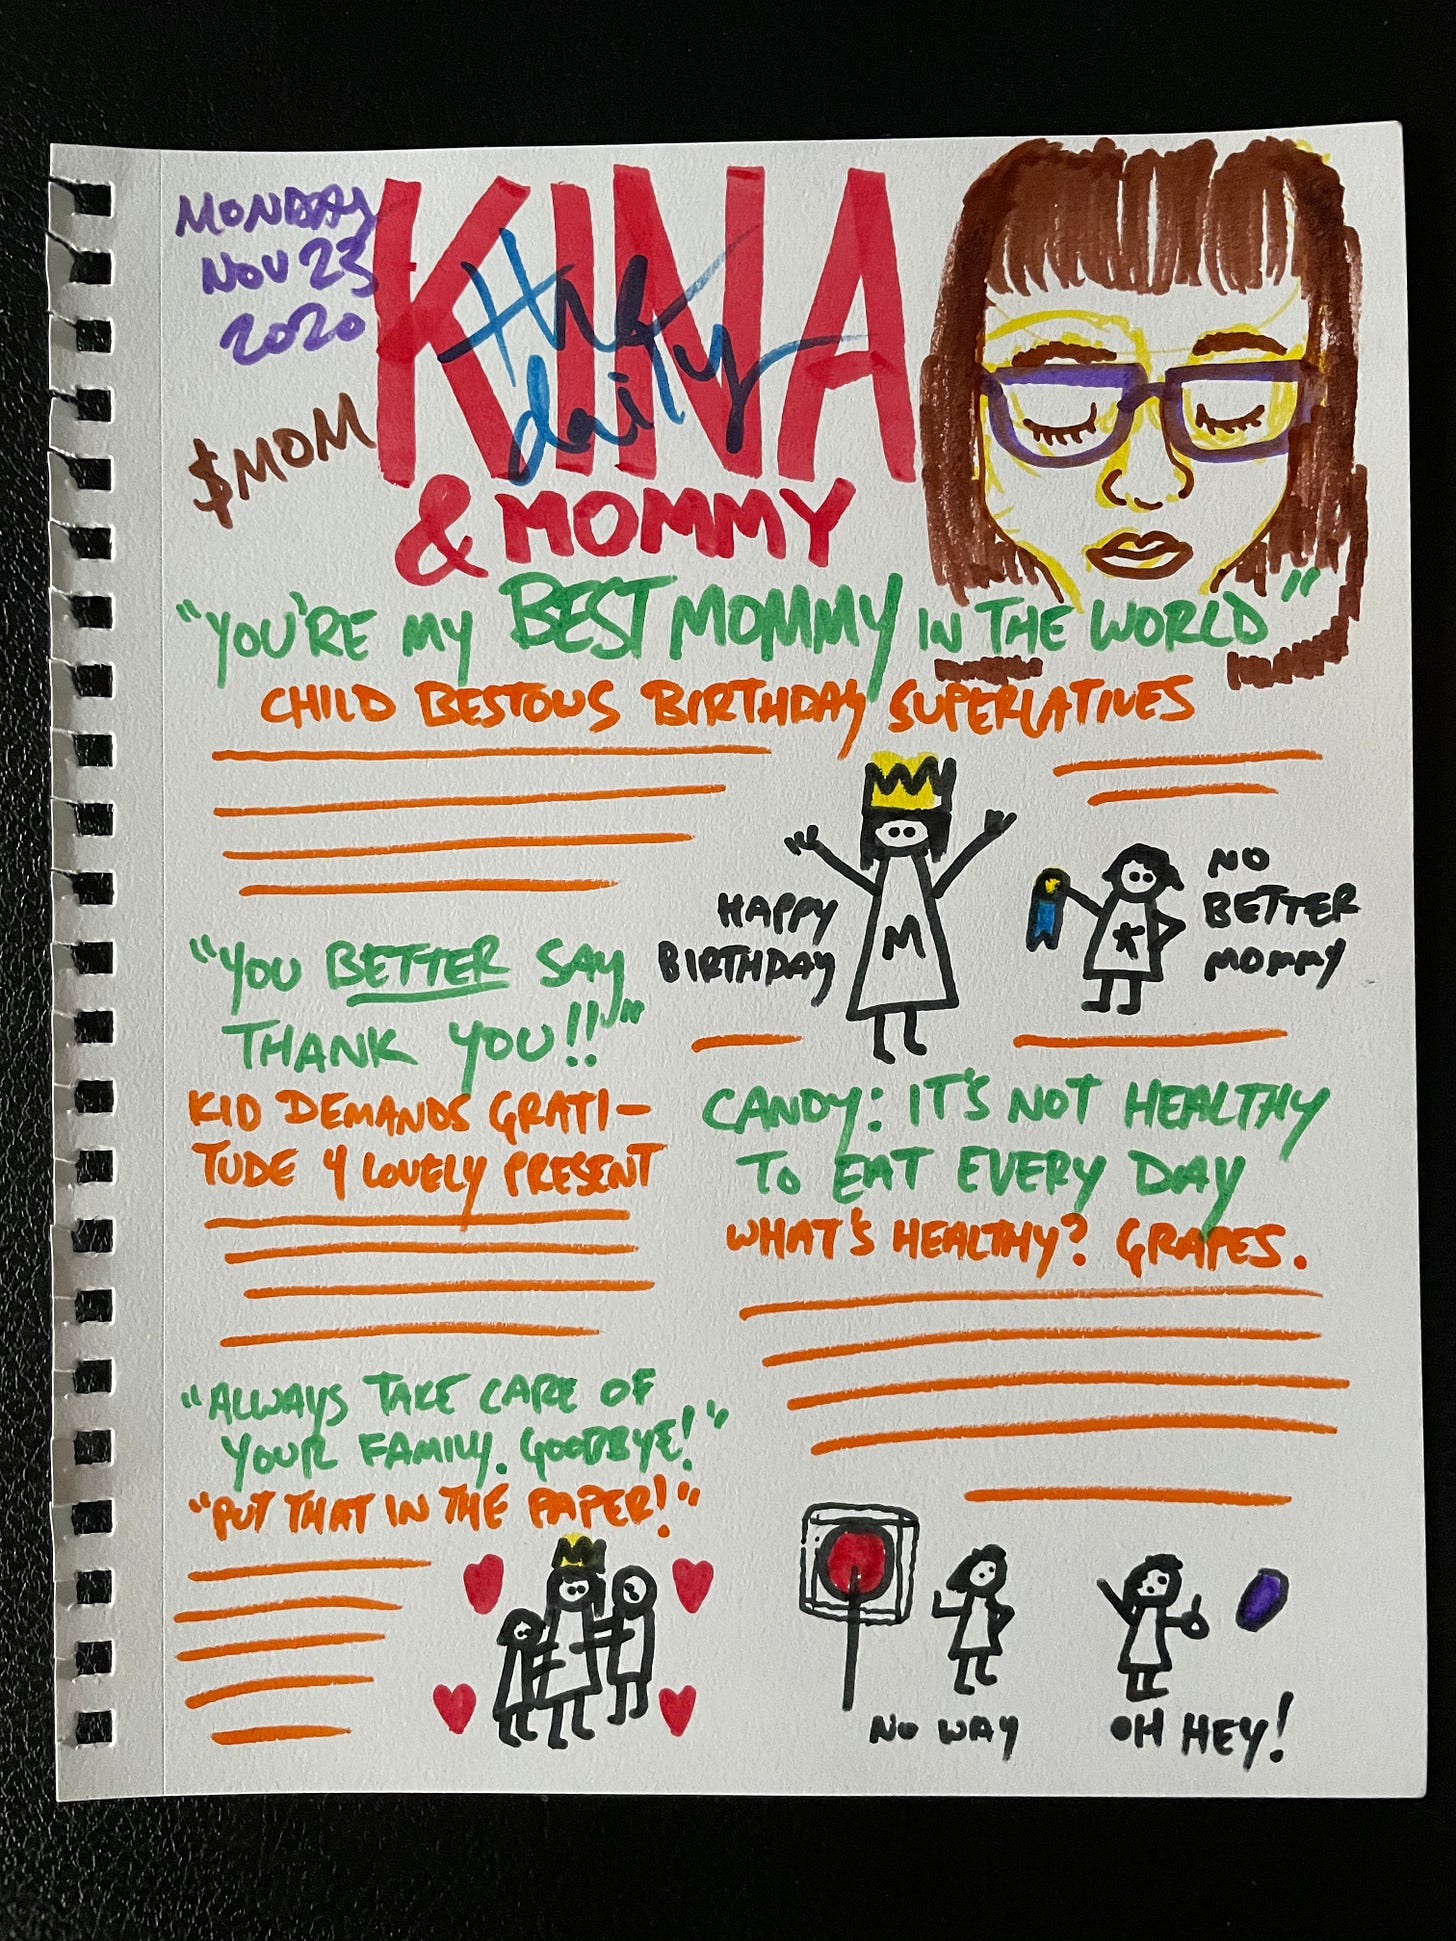 MONDAY
NOV 23
2020
$MOM
KINA
the
daily
& MOMMY
"YOU'RE MY BEST MOMMY IN THE WORLD"
CHILD BESTOWS BIRTHDAY SUPERLATIVES
HAPPY
BIRTHDAY
M
K
NO
BETTER
MOMMY
"YOU BETTER SAY
THANK YOU!!"
KID DEMANDS GRATI-
TUDE 4 LOVELY PRESENT
CANDY: IT'S NOT HEALTHY
TO EAT EVERY DAY
WHAT'S HEALTHY? GRAPES.
"ALWAYS TAKE CARE OF
YOUR FAMILY. GOODBYE!"
"PUT THAT IN THE PAPER!"
NO WAY
OH HEY!